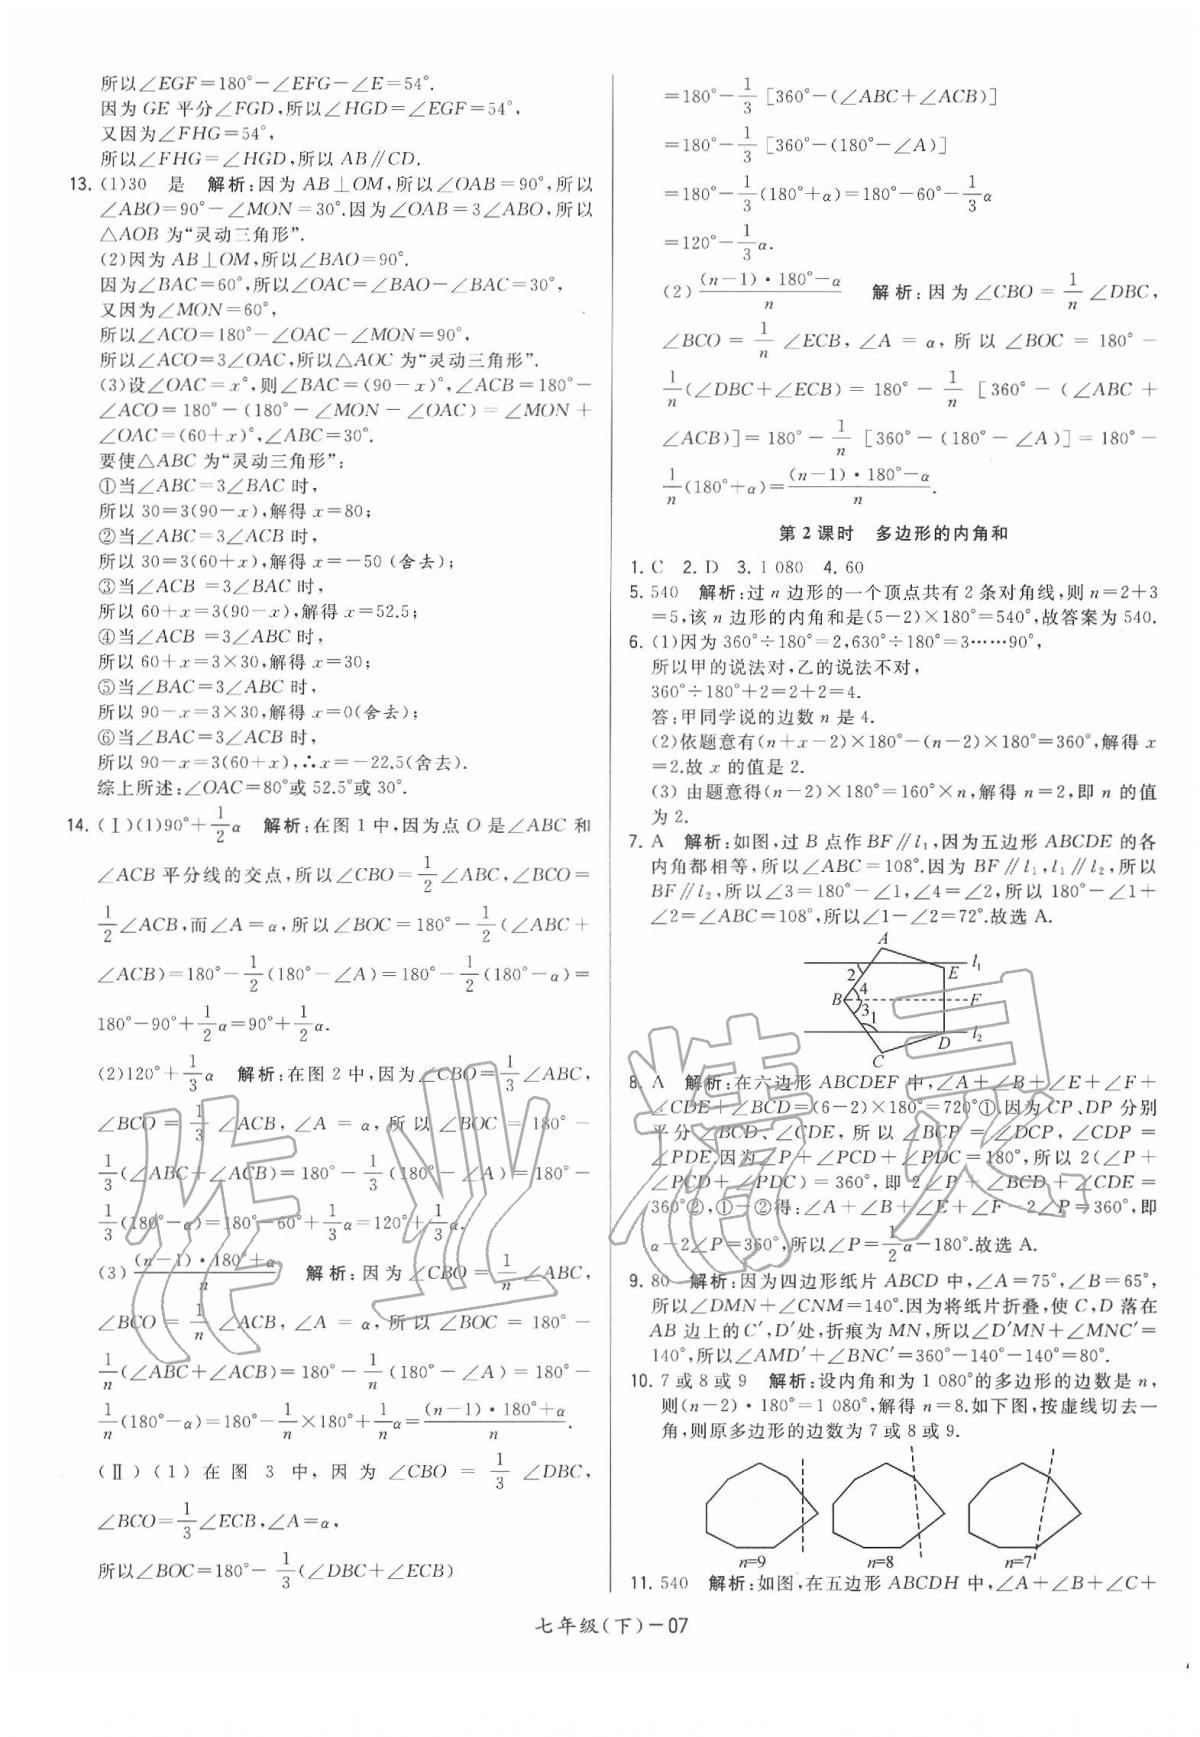 所以∠EGF=180°-∠EFG-∠E=54°.
因为 GE 平分∠FGD,所以∠HGD=∠EGF=54°,
又因为∠FHG=54°,
所以∠FHG=∠HGD,所以 AB∥CD.
13. (1)30 是 解析:因为 AB⊥OM,所以∠OAB=90°,所以
∠ABO=90°-∠MON=30°.因为∠OAB=3∠ABO,所以
△AOB 为“灵动三角形”.
(2)因为 AB⊥OM,所以∠BAO=90°.
因为∠BAC=60°,所以∠OAC=∠BAO-∠BAC=30°,
又因为∠MON=60°,
所以∠ACO=180°-∠OAC-∠MON=90°,
所以∠ACO=3∠OAC,所以△AOC 为“灵动三角形”.
(3)设∠OAC=x°,则∠BAC=(90-x)°,∠ACB=180°-
∠ACO=180°-(180°-∠MON-∠OAC)=∠MON+
∠OAC=(60+x)°,∠ABC=30°.
要使△ABC 为“灵动三角形”:
①当∠ABC=3∠BAC 时,
所以 30=3(90-x),解得 x=80;
②当∠ABC=3∠ACB 时,
所以 30=3(60+x),解得 x=-50 (舍去);
③当∠ACB =3∠BAC 时,
所以 60+x=3(90-x),解得 x=52.5;
④当∠ACB =3∠ABC 时,
所以 60+x=3×30,解得 x=30;
⑤当∠BAC=3∠ABC 时,
所以 90-x=3×30,解得 x=0(舍去);
⑥当∠BAC=3∠ACB 时,
所以 90-x=3(60+x),∴x=-22.5(舍去).
综上所述:∠OAC=80°或 52.5°或 30°.
14. (Ⅰ)(1)90°+1/2α 解析:在图 1 中,因为点 O 是∠ABC 和
∠ACB 平分线的交点,所以∠CBO=1/2∠ABC,∠BCO=
1/2∠ACB,而∠A=α,所以∠BOC=180°-1/2(∠ABC+
∠ACB)=180°-1/2(180°-∠A)=180°-1/2(180°-α)=
180°-90°+1/2α=90°+1/2α.
(2)120°+1/3α 解析:在图 2 中,因为∠CBO=1/3∠ABC,
∠BCO=1/3∠ACB,∠A=α,所以∠BOC=180°-
1/3(∠ABC+∠ACB)=180°-1/3(180°-∠A)=180°-
1/3(180°-α)=180°-60°+1/3α=120°+1/3α.
(3)((n-1)·180°+α)/n 解析:因为∠CBO=1/n∠ABC,
∠BCO=1/n∠ACB,∠A=α,所以∠BOC=180°-
1/n(∠ABC+∠ACB)=180°-1/n(180°-∠A)=180°-
1/n(180°-α)=180°-1/n×180°+1/nα=((n-1)·180°+α)/n.
(Ⅱ)(1)在图 3 中,因为∠CBO=1/3∠DBC,
∠BCO=1/3∠ECB,∠A=α,
所以∠BOC=180°-1/3(∠DBC+∠ECB)
=180°-1/3[360°-(∠ABC+∠ACB)]
=180°-1/3[360°-(180°-∠A)]
=180°-1/3(180°+α)=180°-60°-1/3α
=120°-1/3α.
(2)((n-1)·180°-α)/n 解析:因为∠CBO=1/n∠DBC,
∠BCO=1/n∠ECB,∠A=α,所以∠BOC=180°-
1/n(∠DBC+∠ECB)=180°-1/n[360°-(∠ABC+
∠ACB)]=180°-1/n[360°-(180°-∠A)]=180°-
1/n(180°+α)=((n-1)·180°-α)/n.
第 2 课时 多边形的内角和
1. C 2. D 3. 1 080 4. 60
5. 540 解析:过 n 边形的一个顶点共有 2 条对角线,则 n=2+3
=5,该 n 边形的内角和是(5-2)×180°=540°,故答案为 540.
6. (1)因为 360°÷180°=2,630°÷180°=3……90°,
所以甲的说法对,乙的说法不对,
360°÷180°+2=2+2=4.
答:甲同学说的边数 n 是 4.
(2)依题意有(n+x-2)×180°-(n-2)×180°=360°,解得 x
=2.故 x 的值是 2.
(3) 由题意得(n-2)×180°=160°×n,解得 n=2,即 n 的值
为 2.
7. A 解析:如图,过 B 点作 BF∥l₁,因为五边形 ABCDE 的各
内角都相等,所以∠ABC=108°.因为 BF∥l₁,l₁∥l₂,所以
BF∥l₂,所以∠3=180°-∠1,∠4=∠2,所以 180°-∠1+
∠2=∠ABC=108°,所以∠1-∠2=72°.故选 A.
A
2 E l₁
4
B F
3 1
D l₂
C
8. A 解析:在六边形 ABCDEF 中,∠A+∠B+∠E+∠F+
∠CDE+∠BCD=(6-2)×180°=720°①.因为 CP、DP 分别
平分∠BCD、∠CDE,所以∠BCP=∠DCP,∠CDP=
∠PDE.因为∠P+∠PCD+∠PDC=180°,所以 2(∠P+
∠PCD+∠PDC)=360°,即 2∠P+∠BCD+∠CDE=
360°②,①-②得:∠A+∠B+∠E+∠F-2∠P=360°,即
α-2∠P=360°,所以∠P=1/2α-180°.故选 A.
9. 80 解析:因为四边形纸片 ABCD 中,∠A=75°,∠B=65°,
所以∠DMN+∠CNM=140°.因为将纸片折叠,使 C,D 落在
AB 边上的 C′,D′处,折痕为 MN,所以∠D′MN+∠MNC′=
140°,所以∠AMD′+∠BNC′=360°-140°-140°=80°.
10. 7 或 8 或 9 解析:设内角和为 1 080°的多边形的边数是 n,
则(n-2)·180°=1 080°,解得 n=8.如下图,按虚线切去一
角,则原多边形的边数为 7 或 8 或 9.
n=9 n=8 n=7
11. 540 解析:如图,在五边形 ABCDH 中,∠A+∠B+∠C+
七年级(下)-07
作业精灵